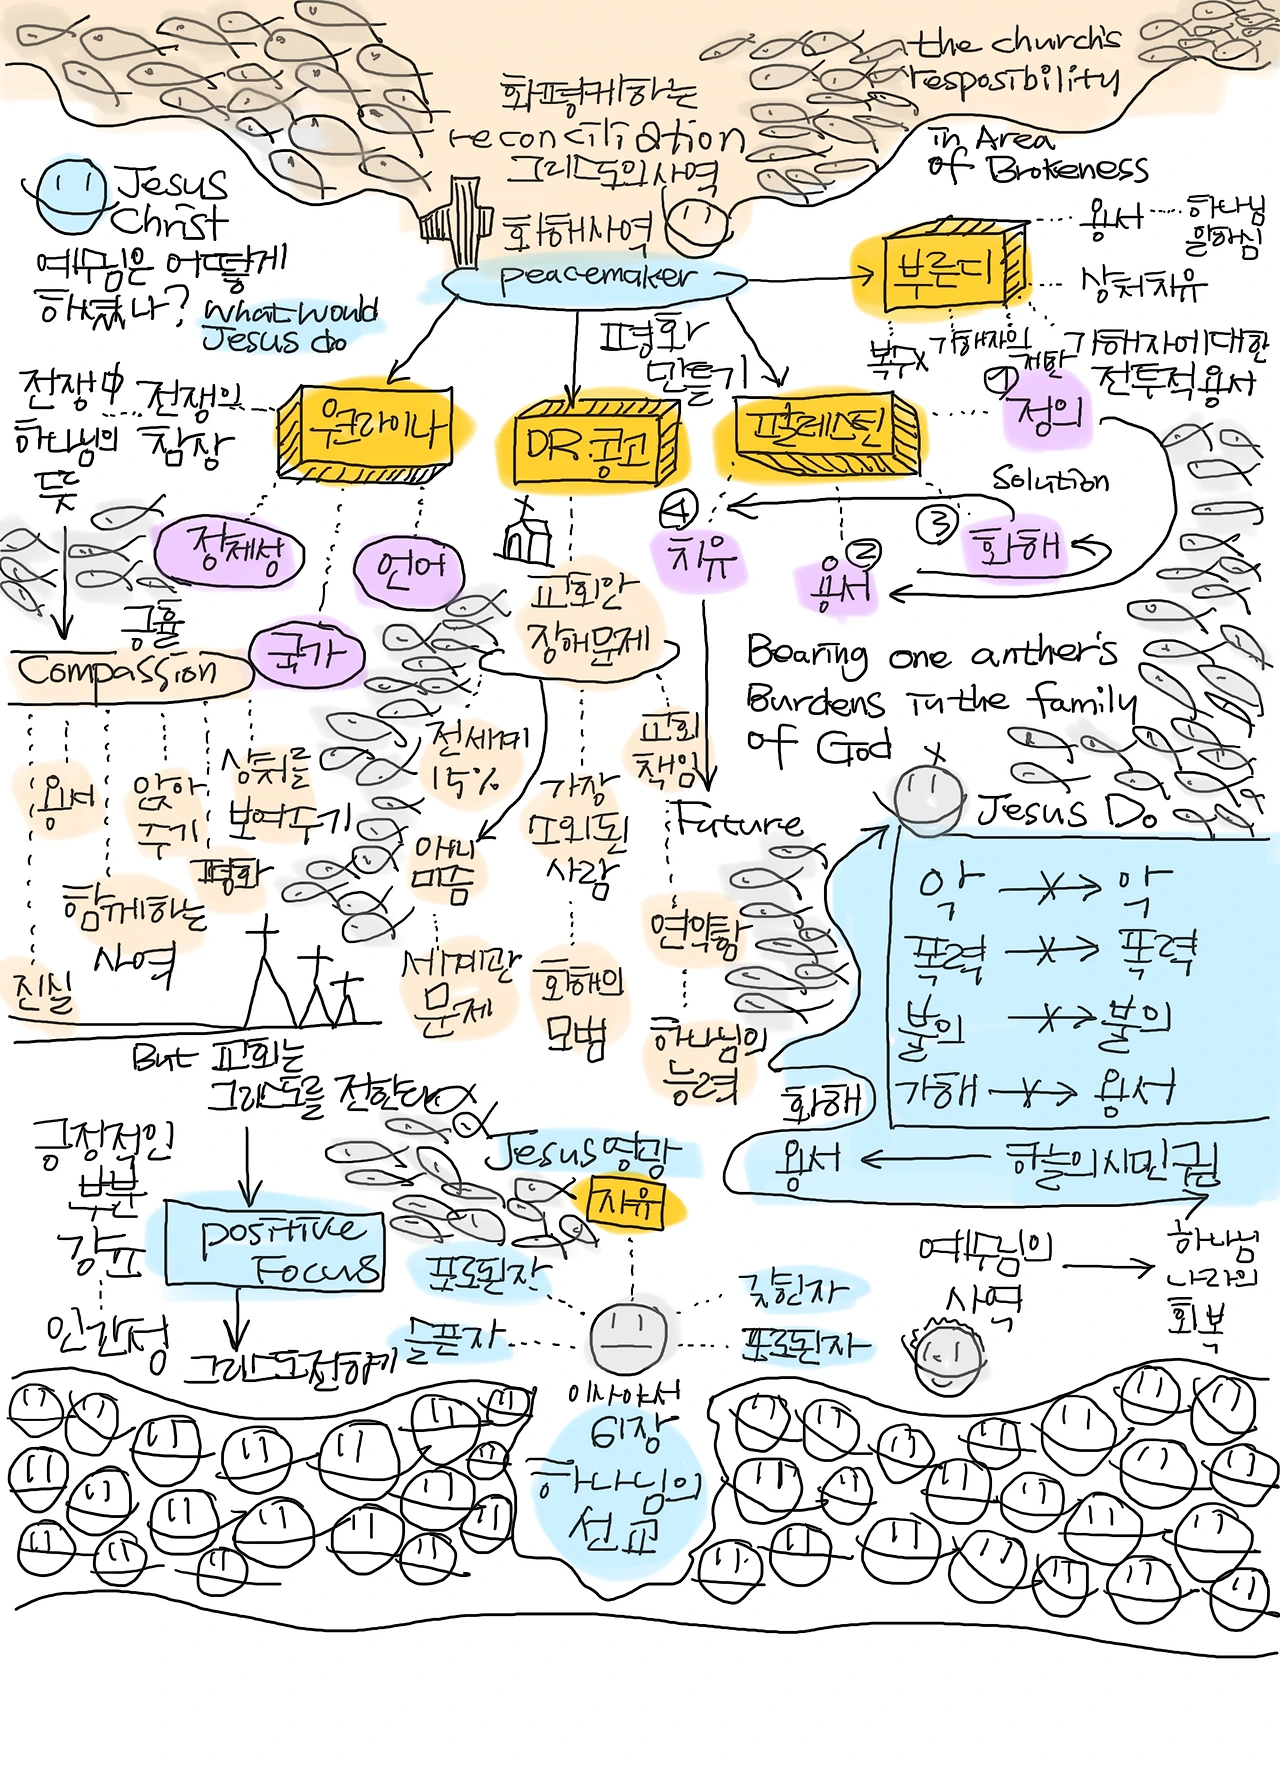 the church's
resposibility
화평케하는
reconciliation
그리스도의사역
in Area
of Brokeness
Jesus
Christ
화해사역
peacemaker
부룬디
용서
하나님
말하심
상처치유
예수님은 어떻게
하셨나?
what would
Jesus do
평화
만들기
복수x
가해자의
가해자에대한
전투적용서
전쟁中
하나님의
뜻
전쟁의
참장
우크라이나
DR.콩고
팔레스틴
① 정의
Solution
정체성
언어
④
치유
②
용서
③
화해
긍휼
Compassion
국가
교회안
장해문제
Bearing one anther's
Burdens in the family
of God
용서
앉아
주기
상처를
보여주기
평화
함께하는
사역
진실
전세계
15%
애니
미즘
세계관
문제
가장
소외된
사람
화해의
모범
교회
책임
연약함
하나님의
능력
Future
Jesus Do
악 → 악
폭력 → 폭력
불의 → 불의
가해 → 용서
화해
용서 ← 하늘의시민권
But 교회는
그리스도를 전한다
긍정적인
부분
강조
인간성
positive
Focus
그리스도전하기
Jesus영광
자유
포로된자
갇힌자
슬픈자
포로된자
이사야서
61장
하나님의
선교
예수님의
사역
하나님
나라의
회복